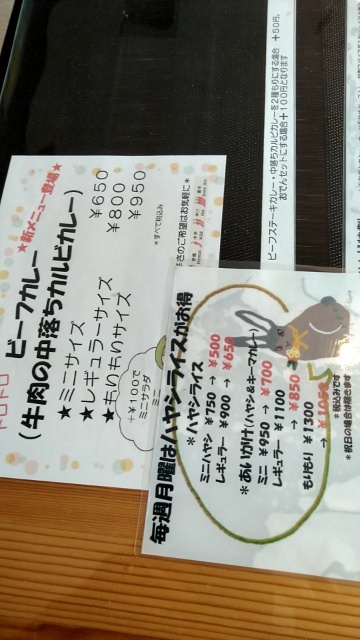 ★新メニュー登場★
トロトロ
ビーフカレー
(牛肉の中落ちカルビカレー)
★ミニサイズ ¥650
★レギュラーサイズ ¥800
★もいもいサイズ ¥950
*すべて税込み
+¥100で
ミニサラダ
ミニ
さのご希望はお気軽に*
ビーフステーキカレー・中落ちカルビカレーを2種もりにする場合 +50円、
おでんセットにする場合+100円となります
毎週月曜はハヤシライスがお得
*ハヤシライス
ミニハヤシ ¥750 → ¥500
レギュラー ¥900 → ¥650
*あいがけ(ハヤシ&キーマカレー)
ミニ ¥950 → ¥700
レギュラー ¥1100 → ¥850
もいもい ¥1300 → ¥1050
*税込みです
*祝日の場合は除きます